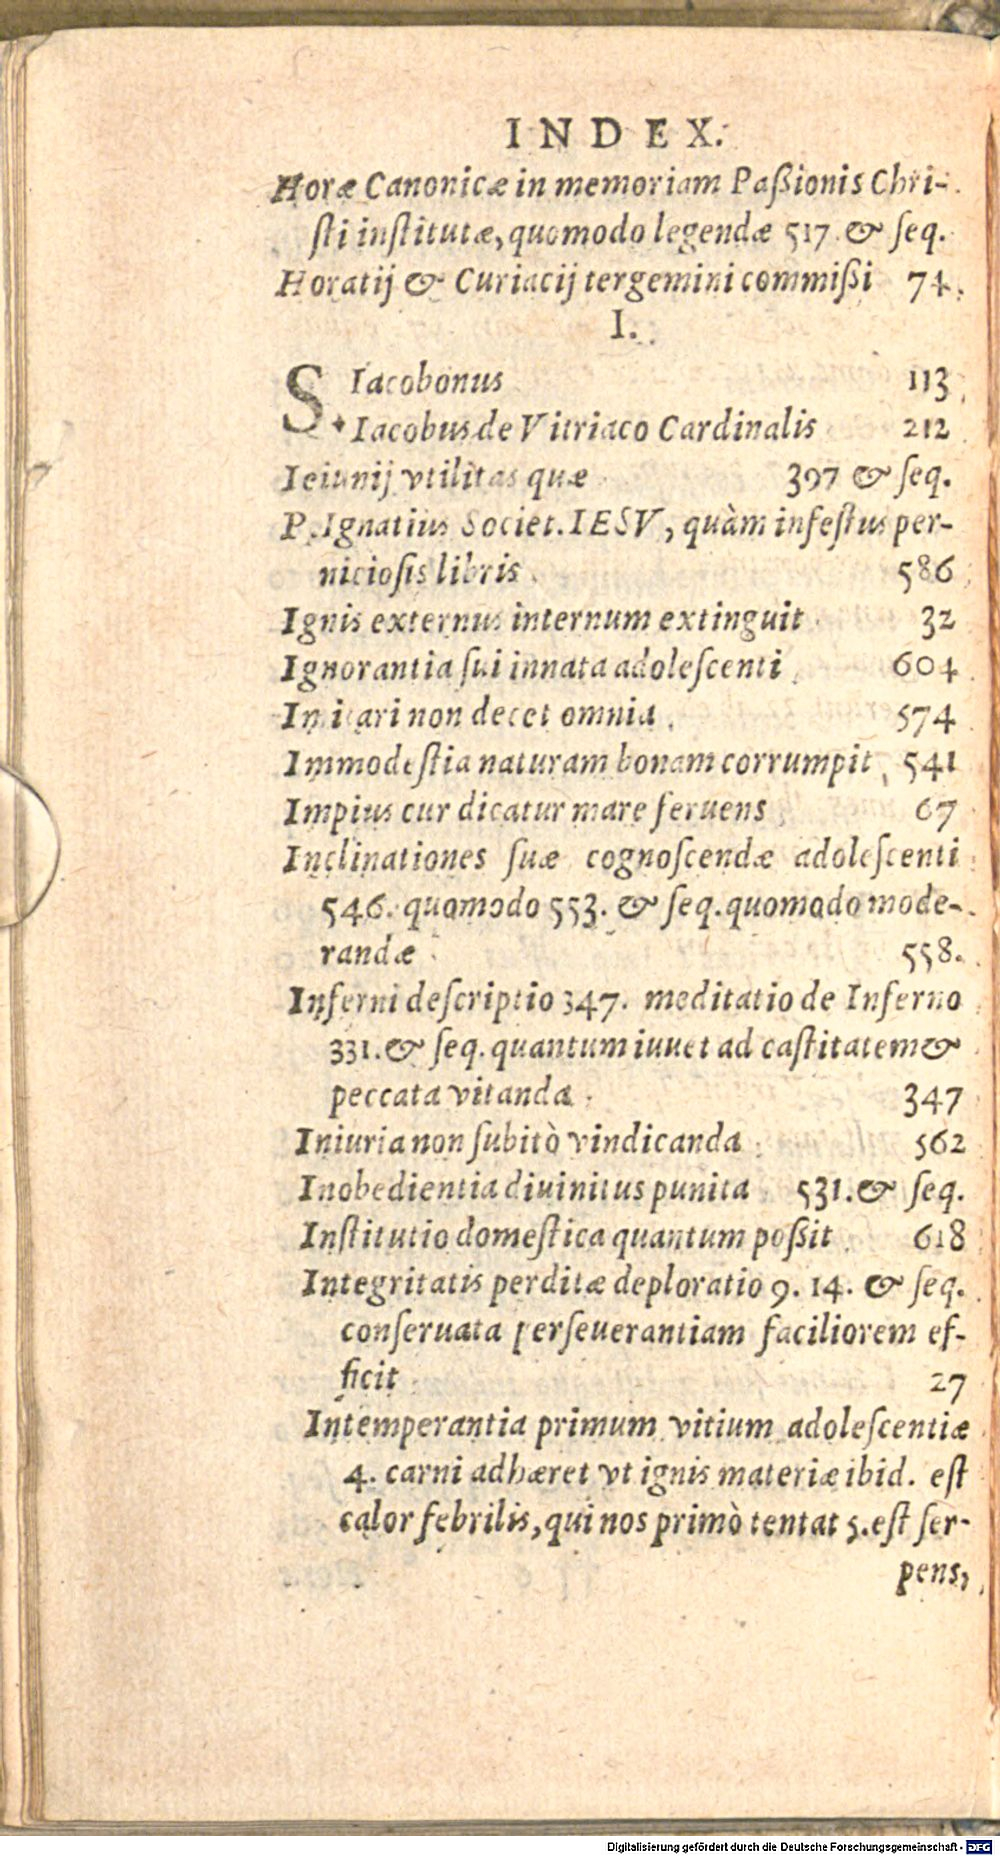 INDEX.
Horæ Canonicæ in memoriam Paßionis Chri-
ſti inſtitutæ, quomodo legendæ 517. & ſeq.
Horatij & Curiacij tergemini commißi 74.
I.
S. Iacobonus 113
Iacobus de Vitriaco Cardinalis 212
Ieiunij vtilitas quæ 397 & ſeq.
P. Ignatius Societ. IESV, quàm infeſtus per-
nicioſis libris 586
Ignis externus internum extinguit 32
Ignorantia ſui innata adoleſcenti 604
Imitari non decet omnia 574
Immodeſtia naturam bonam corrumpit 541
Impius cur dicatur mare feruens 67
Inclinationes ſuæ cognoſcendæ adoleſcenti
546. quomodo 553. & ſeq. quomodo mode-
randæ 558.
Inferni deſcriptio 347. meditatio de Inferno
331. & ſeq. quantum iuuet ad caſtitatem &
peccata vitanda 347
Iniuria non ſubitò vindicanda 562
Inobedientia diuinitus punita 531. & ſeq.
Inſtitutio domeſtica quantum poßit 618
Integritatis perditæ deploratio 9. 14. & ſeq.
conſeruata perſeuerantiam faciliorem ef-
ficit 27
Intemperantia primum vitium adoleſcentiæ
4. carni adhæret vt ignis materiæ ibid. eſt
calor febrilis, qui nos primò tentat 5. eſt ſer-
pens,
Digitalisierung gefördert durch die Deutsche Forschungsgemeinschaft - DFG